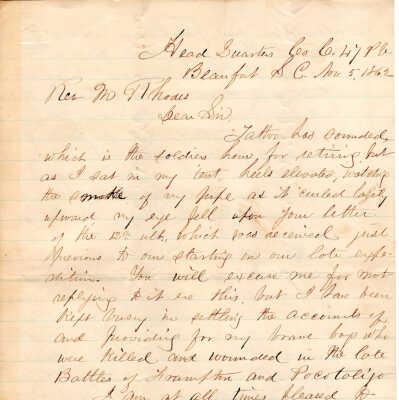 Head Quarters Co C. 47 P.V.
Beaufort S C. Nov 5, 1862
Rev M Rhodes
Dear Sir.
Tattoo has sounded,
which is the soldiers hour for retiring, but
as I sat in my tent, heels elevated, watching
the smoke of my pipe as it curled lazily
upward my eye fell upon your letter
of the 12th ult, which was received just
previous to our starting on our late expe-
dition. You will excuse me for not
replying to it ere this, but I have been
kept busy in settling the accounts of
and providing for my brave boys who
were killed and wounded in the late
Battles of Frampton and Pocotoligo
I am at all times pleased to